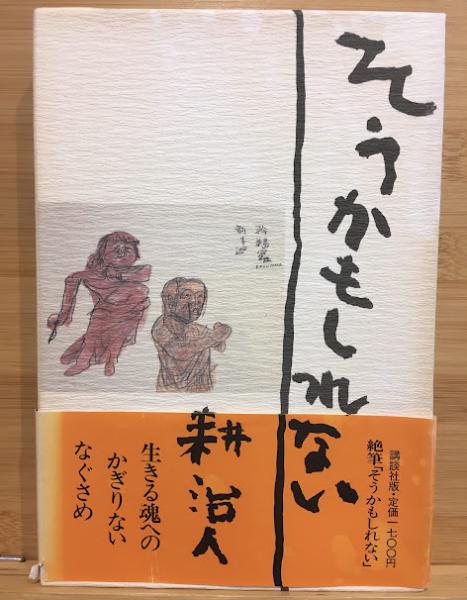 そうかもしれない
耕治人
講談社版・定価一七〇〇円
絶筆「そうかもしれない」
生きる魂への
かぎりない
なぐさめ